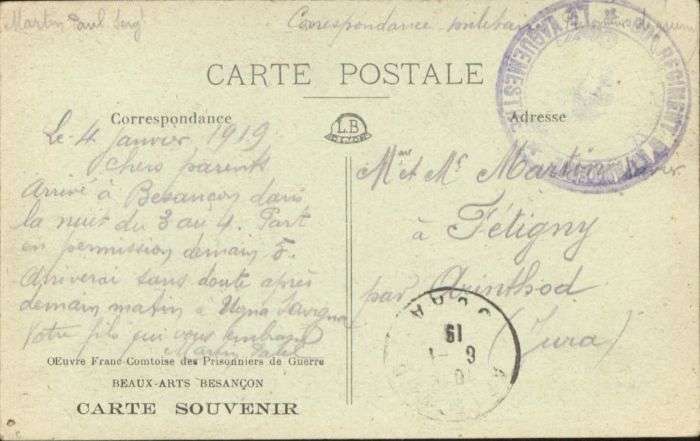 Martin Paul Serg^t
Correspondance militaire
LE VAGUEMESTRE
RÉGIMENT
CARTE POSTALE
Correspondance
L.B
Adresse
Le 4 Janvier 1919
Chers parents
Arrivé à Besançon dans
la nuit du 3 au 4. Part
en permission demain 5.
Arriverai sans doute après
demain matin à Ugna Savigna
Votre fils qui vous embrasse
Martin Paul
Œuvre Franc-Comtoise des Prisonniers de Guerre
BEAUX-ARTS BESANÇON
CARTE SOUVENIR
Mme et Mr Martin
à Fétigny
par Arinthod
(Jura)
19
6 - 1
JURA